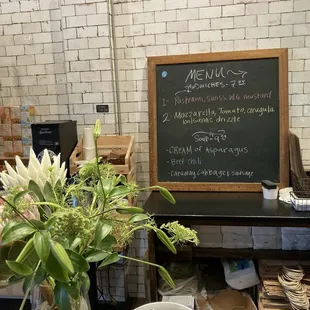 MENU
SANDWICHES - 7
1- Pastrami, swiss, w/g mustard
2- Mozzarella, Tomato, arugula
balsamic drizzle
Soup
- CREAM of Asparagus
- Beef Chili
- Caraway Cabbage & sausage